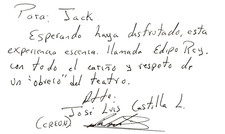 Para: Jack
Esperando haya disfrutado, esta
experiencia escenica. llamada Edipo Rey.
con todo el cariño y respeto de
un "obrero" del teatro.
Atte:
José Luis Castilla L.
(CREON)